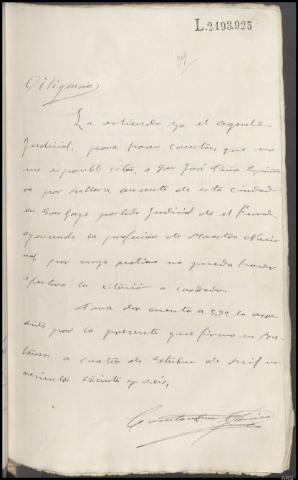 L.2193.925
Diligencia
La extiendo yo el agente
Judicial, para hacer constar que no
me es posible citar, a Don José
va por hallarse ausente de esta ciudad
en partido Judicial de el Ferrol
ejerciendo la profesión de Maestro Nacio
nal, por cuyo motivo no puedo hacer
efectiva la citación a
Para dar cuenta a S,Sª la
por la presente que firmo en Be
tanzos, a cuatro de Octubre de mil no
vecientos treinta y seis,